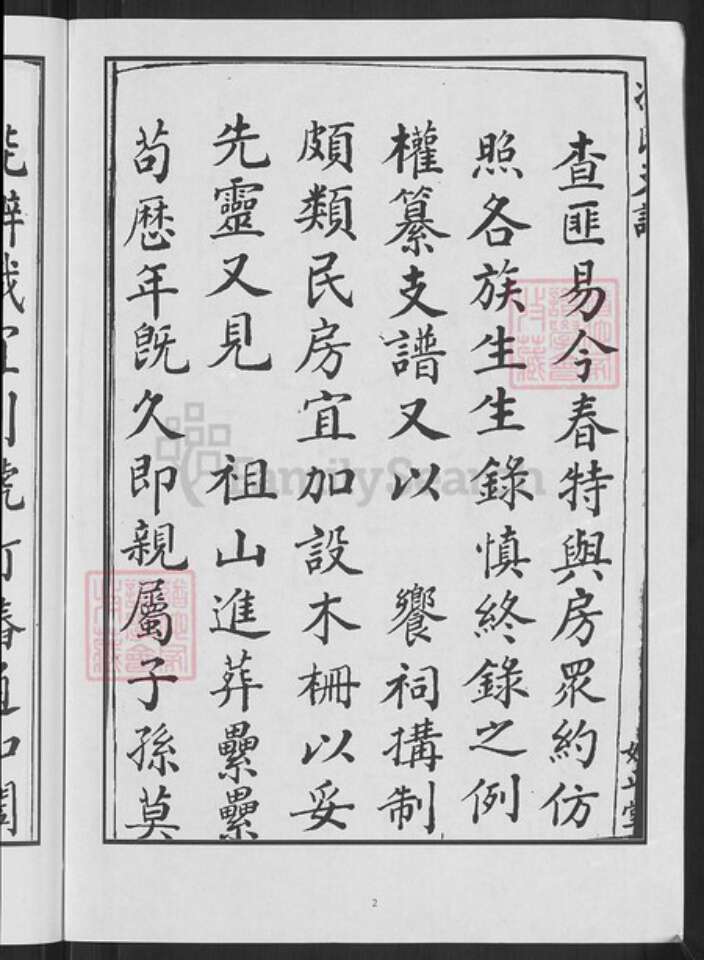 查匪易今春特與房眾約仿
照各族生生錄慎終錄之例
權纂支譜又以 饗祠搆制
頗類民房宜加設木柵以妥
先靈又見 祖山進葬纍纍
苟歷年既久即親屬子孫莫
2
FamilySearch